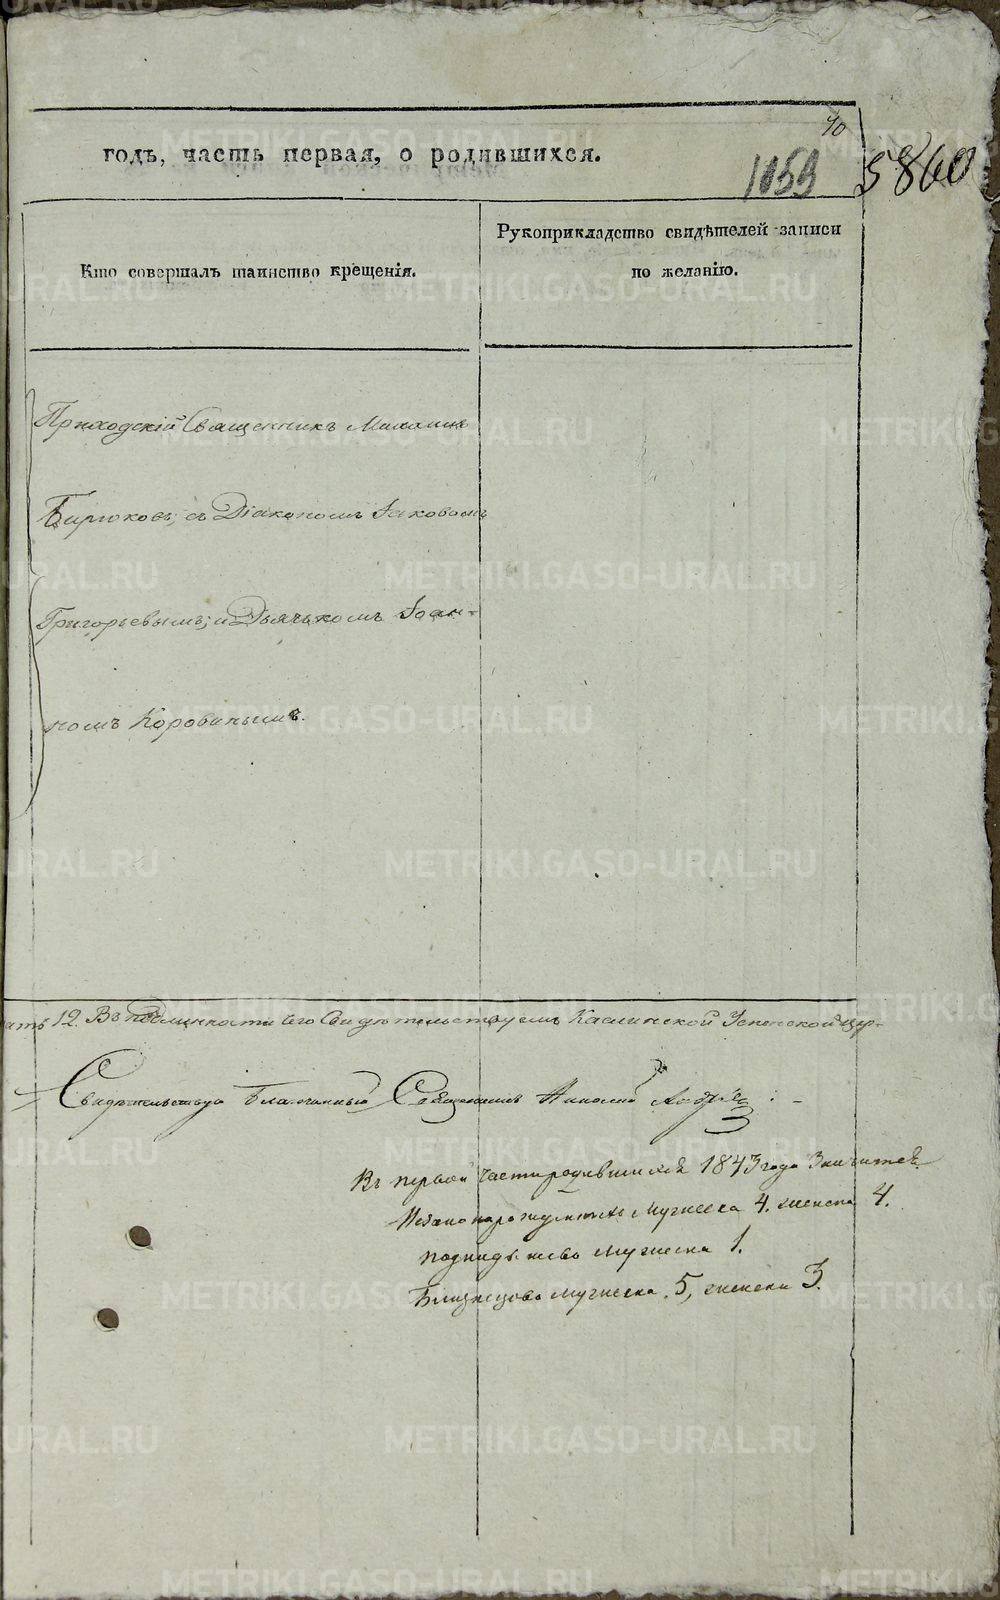 40
годъ, часть первая, о родившихся.
1059
5860
Кто совершалъ таинство крещенія.
Рукоприкладство свидѣтелей записи
по желанію.
Приходскій Священникъ Михаилъ
Бирюковъ, съ Діакономъ Іаковомъ
Григорьевымъ, и Дьячькомъ Іоан-
номъ Коровинымъ.
12. Въ подлинности сего Свидѣтельствуемъ Каслинской Успенской цер-
Свидѣтельствуа Благочинный Священникъ Николай
Въ первой части родившихся 1843 года Значится
мужеска 4. женска 4.
мужеска 1.
Близнецовъ мужеска 5, женска 3.
METRIKI.GASO-URAL.RU